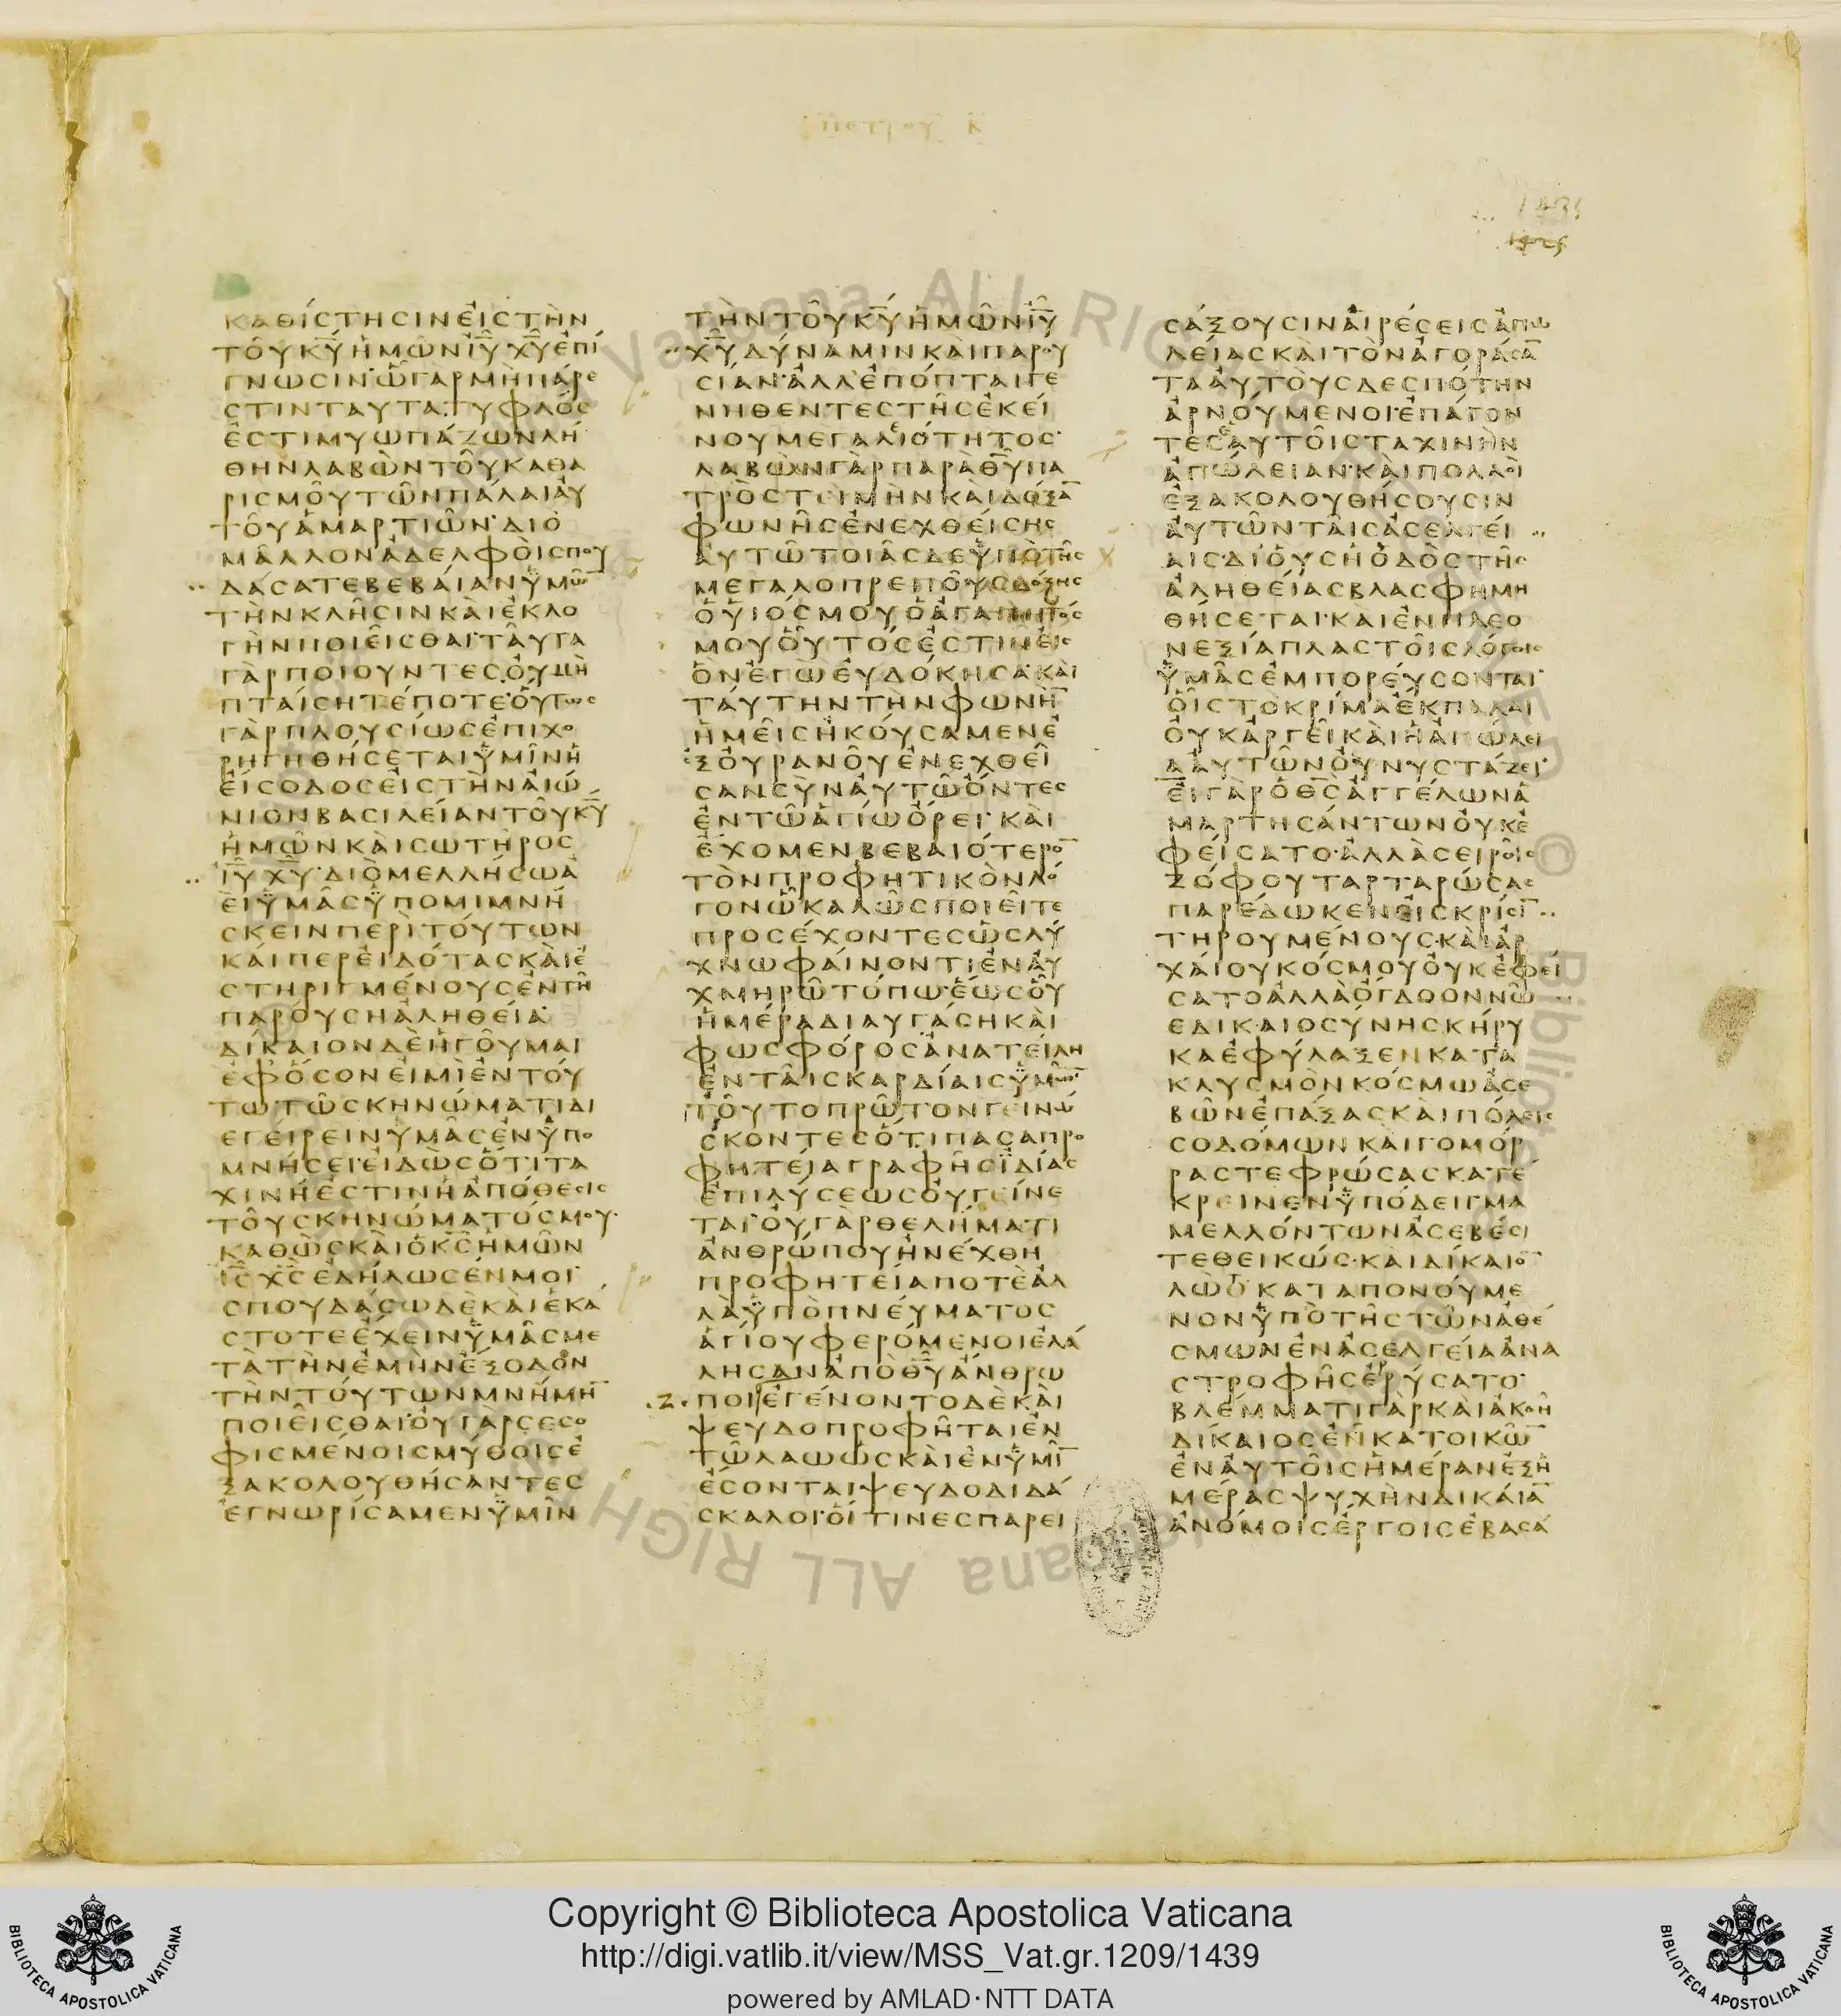 ΠΕΤΡΟΥ Β
ΚΑΘΊϹΤΗϹΙΝΕἸϹΤῊΝ
ΤΟΥ͂ΚΥ̅ἩΜΩ͂ΝΙΥ̅ΧΥ̅ἘΠΊ
ΓΝΩϹΙΝ·Ὧ͂ΓΑΡΜῊΠΆΡΕ
ϹΤΙΝΤΑΥΤΑ·ΤΥΦΛΌϹ
ἘϹΤΙΜΥΩΠΆΖΩΝΛΉ
ΘΗΝΛΑΒῺΝΤΟΥ͂ΚΑΘΑ
ΡΙϹΜΟΥ͂ΤΩ͂ΝΠΆΛΑΙΑΥ̓
ΤΟΥ͂ἉΜΑΡΤΙΩ͂Ν·ΔΙῸ
ΜΑ͂ΛΛΟΝἈΔΕΛΦΟῚϹΠΟΥ
ΔΆϹΑΤΕΒΕΒΑΊΑΝΫΜΩ͂
ΤῊΝΚΛΗ͂ϹΙΝΚΑῚἘΚΛΟ
ΓῊΝΠΟΙΕΙ͂ϹΘΑΙ·ΤΑΥ͂ΤΑ
ΓᾺΡΠΟΙΟΥΝΤΕϹΟΥ̓ΜῊ
ΠΤΑΊϹΗΤΈΠΟΤΕ·ΟὝΤΩϹ
ΓᾺΡΠΛΟΥϹΊΩϹἘΠΙΧΟ
ΡΗΓΗΘΉϹΕΤΑΙΫΜΙ͂ΝἩ
ΕἸϹΟΔΟϹΕἸϹΤῊΝΑἸΏ
ΝΙΟΝΒΑϹΙΛΕΊΑΝΤΟΥ͂ΚΥ̅
ἩΜΩ͂ΝΚΑῚϹΩΤΗ͂ΡΟϹ
ΙΥ̅ΧΥ̅·ΔΙῸΜΕΛΛΉϹΩἈ
ΕῚΫΜΑ͂ϹΫΠΟΜΙΜΝΉ
ϹΚΕΙΝΠΕΡῚΤΟΎΤΩΝ
ΚΑΊΠΕΡΕἸΔΌΤΑϹΚΑῚἘ
ϹΤΗΡΙΓΜΈΝΟΥϹἘΝΤΗ͂
ΠΑΡΟΎϹΗἈΛΗΘΕΊΑ·
ΔΊΚΑΙΟΝΔῈἩΓΟΥ͂ΜΑΙ
ἘΦʼὍϹΟΝΕἸΜῚἘΝΤΟΎ
ΤΩ·ΤΩ͂ϹΚΗΝΏΜΑΤΙΔΙ
ΕΓΕΊΡΕΙΝΫΜΑ͂ϹἘΝΫΠΟ
ΜΝΉϹΕΙ·ΕἸΔῺϹὍΤΙΤΑ
ΧΙΝΉἘϹΤΙΝἩἈΠΌΘΕϹΙϹ
ΤΟΥ͂ϹΚΗΝΏΜΑΤΌϹΜΟΥ·
ΚΑΘῺϹΚΑῚὉΚϹ̅ἩΜΩ͂Ν
ΙϹ̅ΧϹ̅ἘΔΉΛΩϹΕΝΜΟΙ·
ϹΠΟΥΔΆϹΩΔῈΚΑῚἙΚΆ
ϹΤΟΤΕἜΧΕΙΝΫΜΑ͂ϹΜΕ
ΤᾺΤῊΝἘΜῊΝἜΞΟΔΟΝ
ΤῊΝΤΟΎΤΩΝΜΝΉΜΗ̅
ΠΟΙΕΙ͂ϹΘΑΙ·ΟΥ̓ΓᾺΡϹΕϹΟ
ΦΙϹΜΈΝΟΙϹΜΎΘΟΙϹἘ
ΞΑΚΟΛΟΥΘΉϹΑΝΤΕϹ
ἘΓΝΩΡΊϹΑΜΕΝΫΜΙ͂Ν
ΤῊΝΤΟΥ͂ΚΥ̅ἩΜΩ͂ΝΙΥ̅
ΧΥ̅ΔΎΝΑΜΙΝΚΑῚΠΑΡΟΥ
ϹΊΑΝ·ἈΛΛʼἘΠΌΠΤΑΙΓΕ
ΝΗΘΕΝΤΕϹΤΗ͂ϹἘΚΕΊ
ΝΟΥΜΕΓΑΛΙΌΤΗΤΟϹ·
ΛΑΒῺΝΓᾺΡΠΑΡᾺΘΥ̅ΠΑ
ΤΡῸϹΤΕΙΜῊΝΚΑῚΔΌΞΑ̅
ΦΩΝΗ͂ϹἘΝΕΧΘΕΊϹΗϹ
ΑΥ̓ΤΩ͂ΤΟΙΑ͂ϹΔΕΫΠῸΤΗ͂Ϲ
ΜΕΓΑΛΟΠΡΕΠΟΥ͂ϹΔΌΞΗϹ
ὉΫΙΌϹΜΟΥὉἈΓΑΠΗΤΌϹ
ΜΟΥΟὟΤΌϹἘϹΤΙΝΕἸϹ
ὋΝἘΓῺΕΥ̓ΔΌΚΗϹΑ·ΚΑῚ
ΤΑΎΤΗΝΤῊΝΦΩΝῊ̅
ἩΜΕΙ͂ϹἨΚΟΎϹΑΜΕΝἘ
ΞΟΥ̓ΡΑΝΟΥ͂ἘΝΕΧΘΕΙ͂
ϹΑΝϹῪΝΑΥ̓ΤΩ͂ὌΝΤΕϹ
ἘΝΤΩ͂ἉΓΊΩὌΡΕΙ·ΚΑῚ
ἜΧΟΜΕΝΒΕΒΑΙΌΤΕΡΟ̅
ΤῸΝΠΡΟΦΗΤΙΚῸΝΛΌ
ΓΟΝΩ͂ΚΑΛΩ͂ϹΠΟΙΕΙ͂ΤΕ
ΠΡΟϹΈΧΟΝΤΕϹὩϹΛΎ
ΧΝΩΦΑΊΝΟΝΤΙἘΝΑΥ̓
ΧΜΗΡΩ͂ΤΌΠΩ·ἝΩϹΟὟ
ἩΜΈΡΑΔΙΑΥΓΆϹΗΚΑῚ
ΦΩϹΦΌΡΟϹἈΝΑΤΕΊΛΗ
ἘΝΤΑΙ͂ϹΚΑΡΔΊΑΙϹΫΜΩ͂Ν
ΤΟΥ͂ΤΟΠΡΩ͂ΤΟΝΓΕΙΝΏ
ϹΚΟΝΤΕϹὍΤΙΠΑϹΑΠΡΟ
ΦΗΤΕΊΑΓΡΑΦΗ͂ϹἸΔΊΑϹ
ἘΠΙΛΎϹΕΩϹΟΥ̓ΓΕΊΝΕ
ΤΑΙ·ΟΥ̓ΓᾺΡΘΕΛΉΜΑΤΙ
ἈΝΘΡΏΠΟΥἨΝΈΧΘΗ
ΠΡΟΦΗΤΕΊΑΠΟΤῈἈΛ
ΛᾺΫΠῸΠΝΕΎΜΑΤΟϹ
ἉΓΊΟΥΦΕΡΌΜΕΝΟΙἘΛΆ
ΛΗϹΑΝἈΠῸΘΥ̅ἌΝΘΡΩ
ΠΟΙἘΓΈΝΟΝΤΟΔῈΚΑῚ
ΨΕΥΔΟΠΡΟΦΗ͂ΤΑΙἘΝ
ΤΩ͂ΛΑΩὩϹΚΑῚἘΝΫΜΙ̅
ἜϹΟΝΤΑΙΨΕΥΔΟΔΙΔΆ
ϹΚΑΛΟΙ·ΟἽΤΙΝΕϹΠΑΡΕΙ
ϹΆΞΟΥϹΙΝΑἹΡΈϹΕΙϹἈΠΩ
ΛΕΊΑϹΚΑῚΤῸΝἈΓΟΡΆϹΑ̅
ΤΑΑΥ̓ΤΟῪϹΔΕϹΠΌΤΗΝ
ἈΡΝΟΎΜΕΝΟΙ·ἘΠΆΓΟΝ
ΤΕϹἙΑΥΤΟΙ͂ϹΤΑΧΙΝῊΝ
ἈΠΏΛΕΙΑΝ·ΚΑῚΠΟΛΛΟῚ
ἘΞΑΚΟΛΟΥΘΉϹΟΥϹΙΝ
ΑΥ̓ΤΩ͂ΝΤΑΙ͂ϹἈϹΕΛΓΕΊ
ΑΙϹ·ΔΙʼΟὛϹἩὉΔῸϹΤΗ͂Ϲ
ἈΛΗΘΕΊΑϹΒΛΑϹΦΗΜΗ
ΘΉϹΕΤΑΙ·ΚΑῚἘΝΠΛΕΟ
ΝΕΞΊΑΠΛΑϹΤΟΙ͂ϹΛΌΓΟΙϹ
ΫΜΑ͂ϹἘΜΠΟΡΕΎϹΟΝΤΑΙ·
ΟἿϹΤῸΚΡΊΜΑἜΚΠΑΛΑΙ
ΟΥ̓ΚἈΡΓΕΙ͂ΚΑῚἩἈΠΏΛΕΙ
ΑΑΥ̓ΤΩ͂ΝΟΥ̓ΝΥϹΤΆΖΕΙ·
ΕἸΓᾺΡὉΘϹ̅ἈΓΓΈΛΩΝἉ
ΜΑΡΤΗϹΆΝΤΩΝΟΥ̓ΚἘ
ΦΕΊϹΑΤΟ·ἈΛΛᾺϹΕΙΡΟΙ͂Ϲ
ΖΌΦΟΥΤΑΡΤΑΡΏϹΑϹ
ΠΑΡΈΔΩΚΕΝΕἸϹΚΡΊϹΙ̅
ΤΗΡΟΥΜΈΝΟΥϹ·ΚΑῚἈΡ
ΧΑΊΟΥΚΌϹΜΟΥΟΥ̓ΚἘΦΕΊ
ϹΑΤΟἈΛΛᾺὌΓΔΟΟΝΝΩ͂
ΕΔΙΚΑΙΟϹΎΝΗϹΚΉΡΥ
ΚΑἘΦΎΛΑΞΕΝΚΑΤΑ
ΚΛΥϹΜῸΝΚΌϹΜΩἈϹΕ
ΒΩ͂ΝἘΠΆΞΑϹΚΑῚΠΌΛΕΙϹ
ϹΟΔΌΜΩΝΚΑῚΓΟΜΌΡ
ΡΑϹΤΕΦΡΏϹΑϹΚΑΤΈ
ΚΡΕΙΝΕΝΫΠΌΔΕΙΓΜΑ
ΜΕΛΛΌΝΤΩΝἈϹΕΒΈϹΙ
ΤΕΘΕΙΚΏϹ·ΚΑῚΔΊΚΑΙΟ̅
ΛῺΤΚΑΤΑΠΟΝΟΎΜΕ
ΝΟΝΫΠῸΤΗ͂ϹΤΩ͂ΝἈΘΈ
ϹΜΩΝἘΝἈϹΕΛΓΕΊΑἈΝΑ
ϹΤΡΟΦΗ͂ϹἘΡΎϹΑΤΟ·
ΒΛΈΜΜΑΤΙΓᾺΡΚΑῚἈΚΟΗ͂
ΔΊΚΑΙΟϹἘΝΚΑΤΟΙΚΩ̅
ἘΝΑΥ̓ΤΟΙ͂ϹἩΜΈΡΑΝἘΞἩ
ΜΈΡΑϹΨΥΧῊΝΔΙΚΑΊΑ̅
ἈΝΌΜΟΙϹἜΡΓΟΙϹἘΒΑϹΆ
Copyright © Biblioteca Apostolica Vaticana
http://digi.vatlib.it/view/MSS_Vat.gr.1209/1439
powered by AMLAD·NTT DATA
BIBLIOTECA APOSTOLICA VATICANA
BIBLIOTECA APOSTOLICA VATICANA